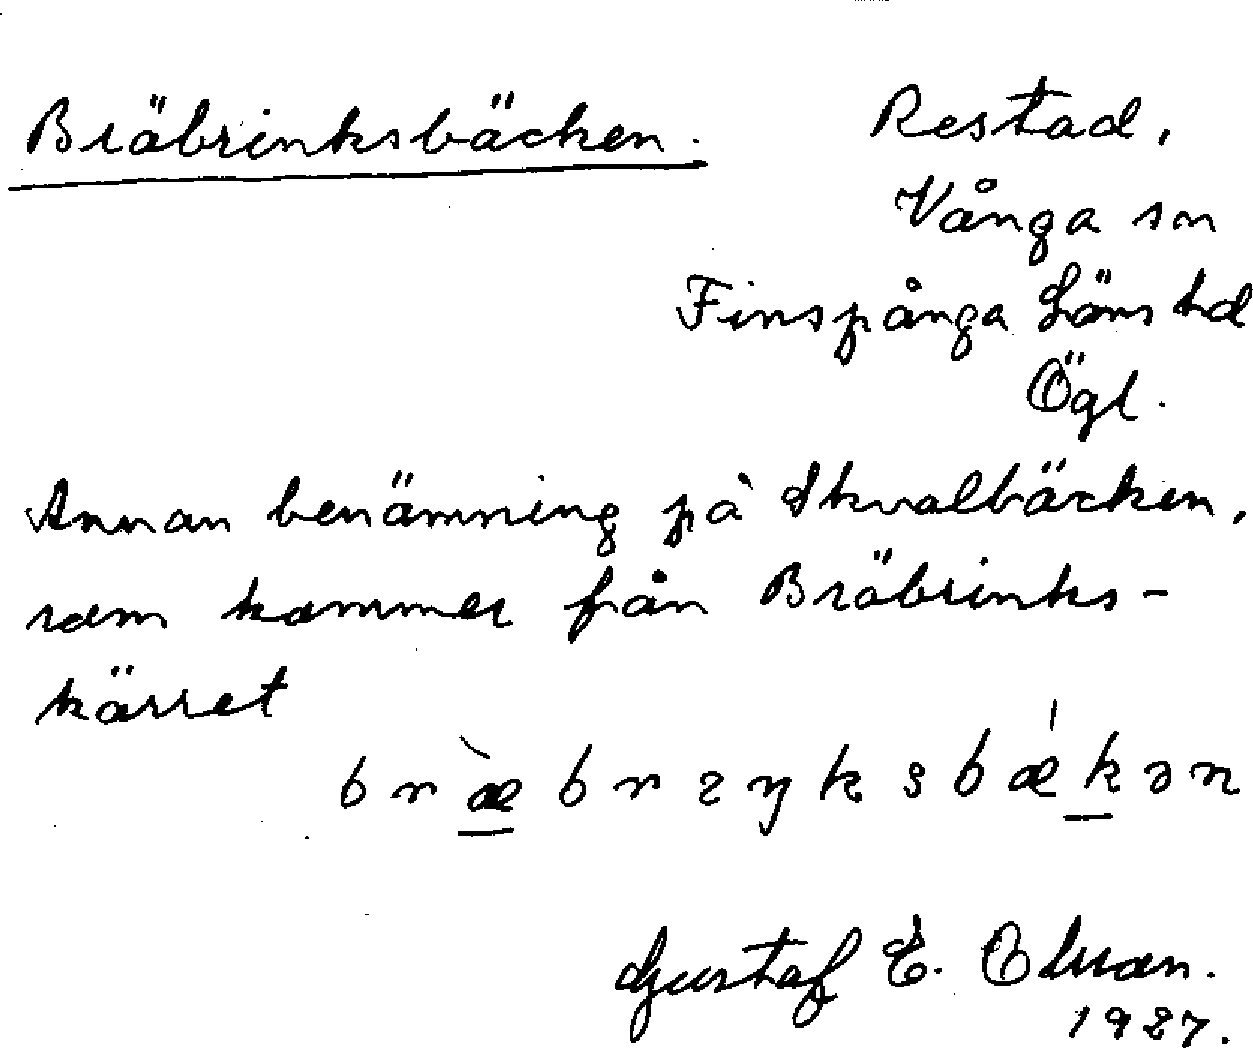 Bräbrinksbäcken.
Restad,
Vånga sn
Finspånga Läns hd
Ögl.
Annan benämning på Skvalbäcken,
som kommer från Bräbrinks-
kärret
Gustaf E. Olsson.
1927.